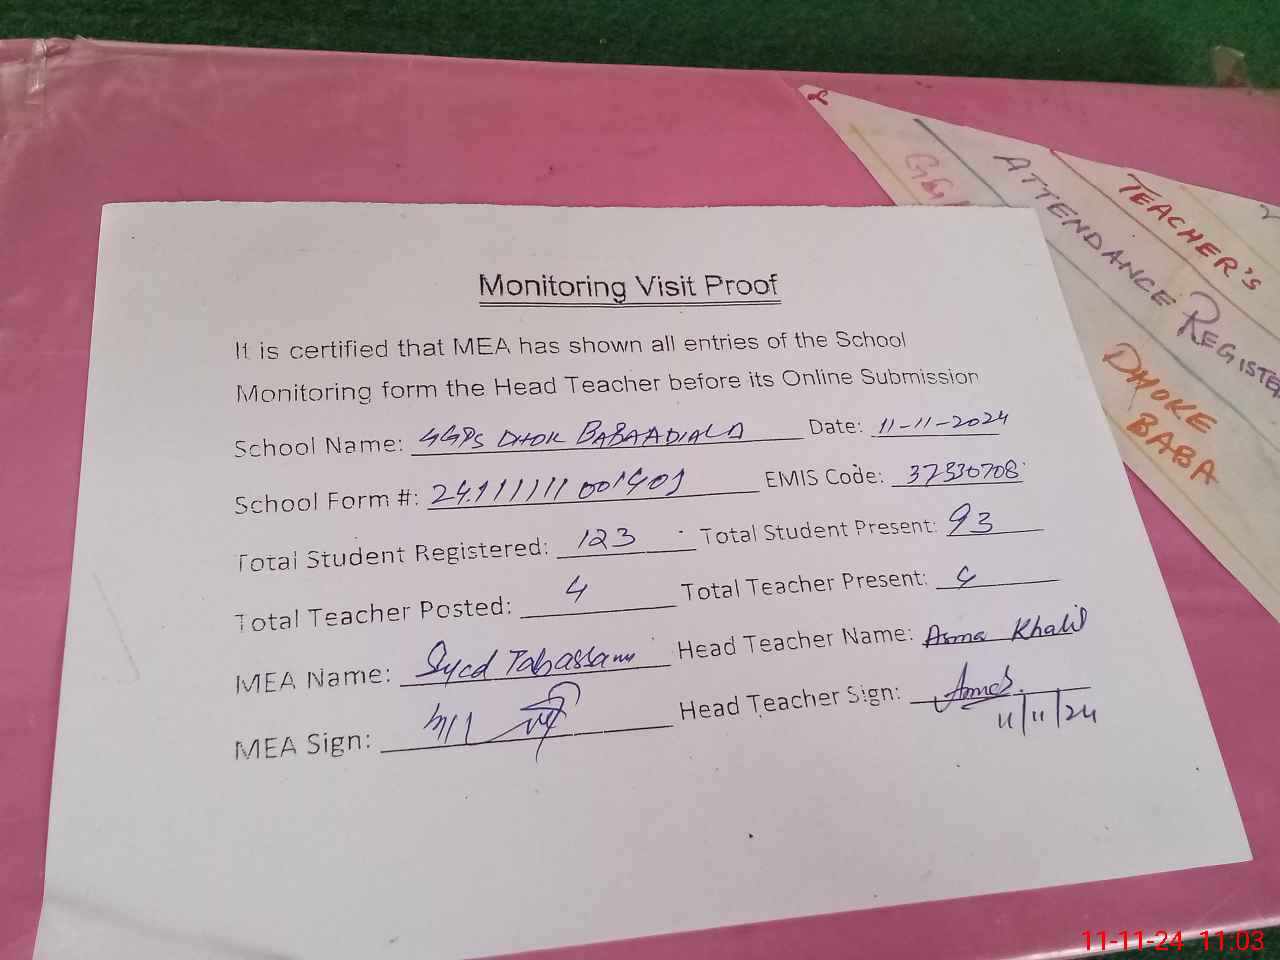 Monitoring Visit Proof
It is certified that MEA has shown all entries of the School
Monitoring form the Head Teacher before its Online Submission
School Name: GGPS DHOK BABAADIALA Date: 11-11-2024
School Form #: EMIS Code: 37330708
Total Student Registered: 123 Total Student Present: 93
Total Teacher Posted: 4 Total Teacher Present: 4
MEA Name: Syed Tabassam Head Teacher Name: Asma Khalil
MEA Sign: Head Teacher Sign:
11/11/24
TEACHER'S
ATTENDANCE REGISTE
DHOKE
BABA
11-11-24 11:03